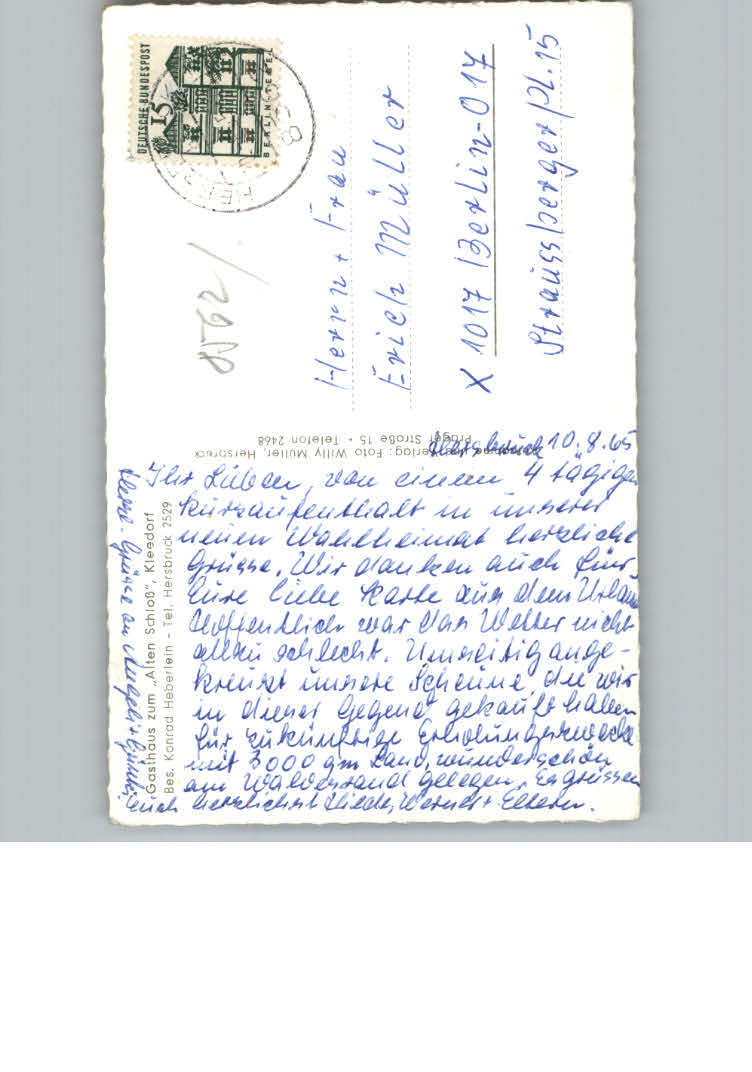 Hersbruck 10.8.65
Ihr Lieben, von einem 4 tägigen
Kurzaufenthalt in unserer
neuen Wahlheimat herzliche
Grüsse. Wir danken auch für
Eure liebe Karte aus dem Urlaub
Hoffentlich war das Wetter nicht
allzu schlecht. Umseitig ange-
kreuzt unsere Scheune die wir
in dieser Gegend gekauft haben
für zukünftige Erholungszwecke
mit 3000 qm Land, wunderschön
am Waldesrand gelegen. Es grüssen
Euch herzlichst Werner + Eltern.
Herzl. Grüsse an
Gasthaus zum „Alten Schloß", Kleedorf
Bes. Konrad Heberlein - Tel. Hersbruck 2529
Verlag: Foto Willy Müller, Hersbruck
Prager Straße 15 • Telefon 2468
DEUTSCHE BUNDESPOST
15
BERLIN-TEGEL
8562/
Herrn + Frau
Erich Müller
X 1017 Berlin-017
Straussberger Pl. 15